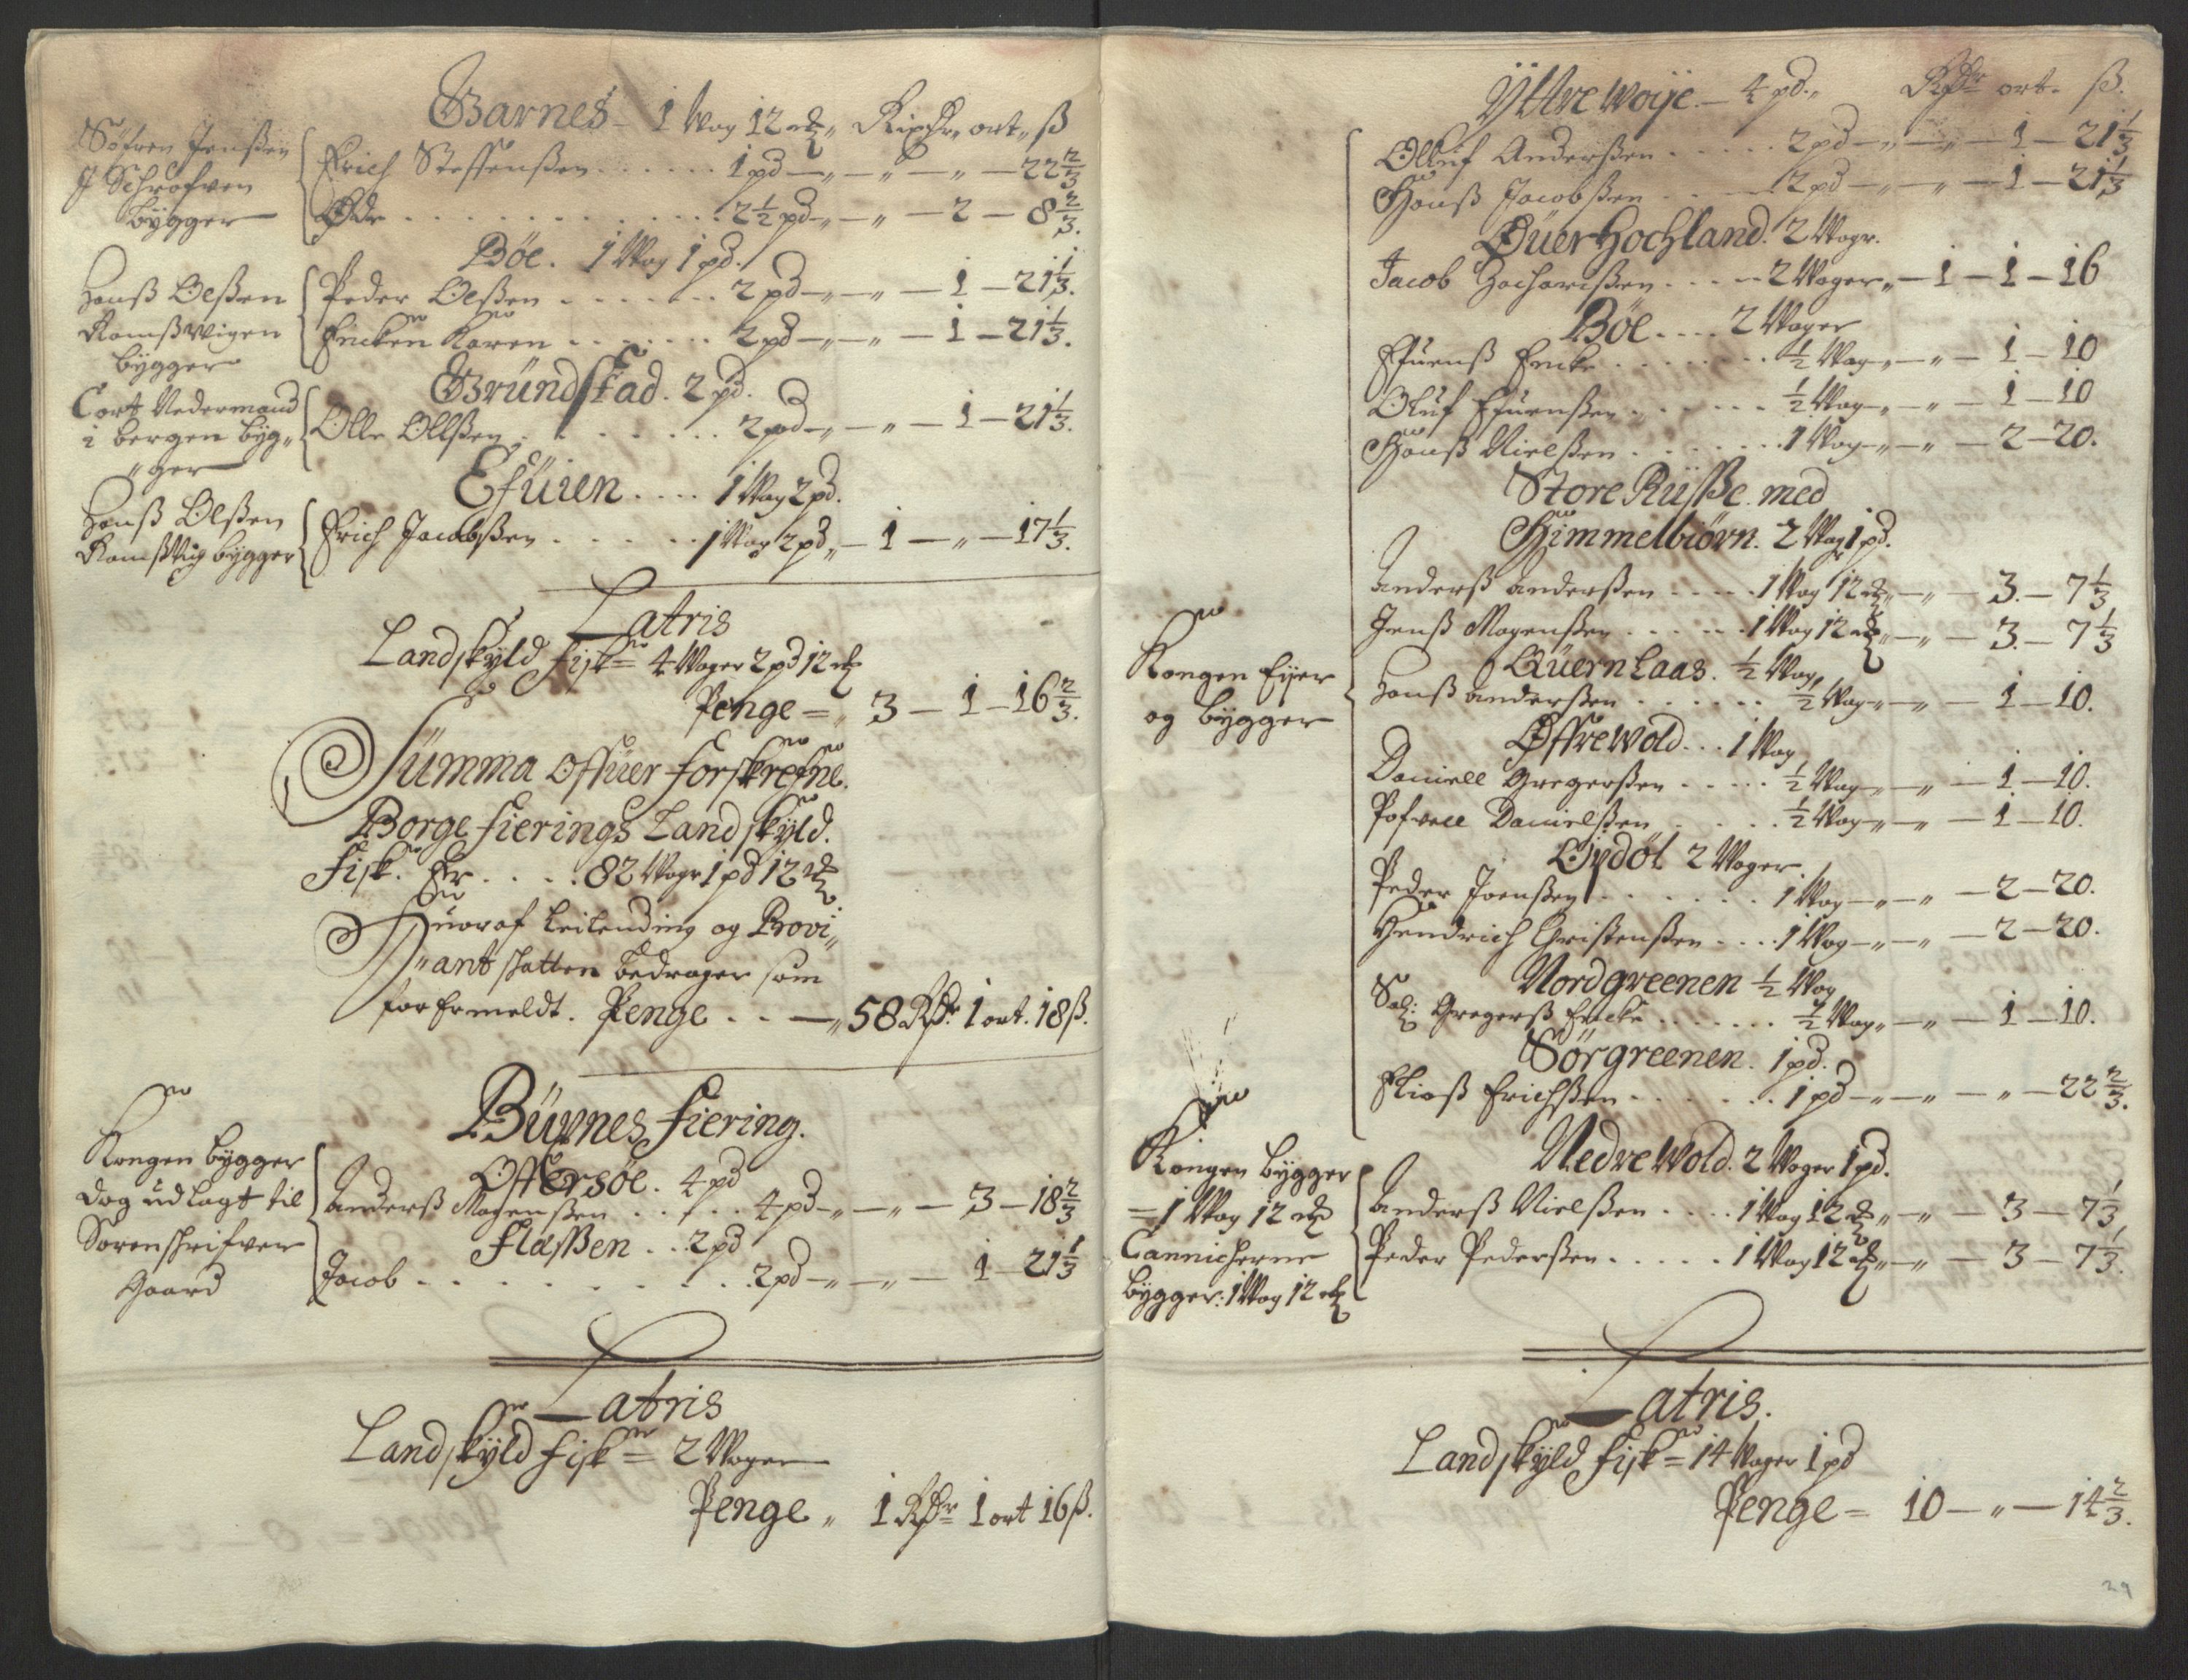 Barnes – 1 Wog 12 ℔ „ Rixdr „ ort „ ß
Søfren Jenßen
J Schrofven
bygger
Erich Steffenßen . . . . . . 1 pd – „ – „ – „ – 22 2/3
Øde . . . . . . . . . . . 2 1/2 pd – „ – „ – 2 – 8 2/3.
Böe. 1 Wog 1 pd.
Hanß Olßen
Ramßwigen
bygger
Peder Olßen . . . . . . . 2 pd – „ – „ – 1 – 21 1/3.
Encken Karen . . . . . . . 2 pd – „ – „ – 1 – 21 1/3.
Gründstad. 2 pd.
Cort Nedermand
i bergen byg„
„ger
Olle Ollßen . . . . . . . 2 pd – „ – „ – 1 – 21 1/3.
Efüien . . . . 1 Wog 2 pd.
Hanß Olßen
Ramßvig bygger
Erich Jacobßen . . . . . . 1 Wog 2 pd „ – 1 – „ – 17 1/3.
Latris
Landskyld fisk = 4 Woger 2 pd 12 ℔
Penge = „ 3 – 1 – 16 2/3.
Summa offuer forskrefne
Borge fierings Landskyld.
fisk. Er . . . . 82 Wogr 1 pd 12 ℔
Huoraf Leilending og Provi„
„ant skatten bedrager som
for Ermeldt. Penge . . – „ 58 Rdr 1 ort. 18 ß.
Büxnes fiering.
Kongen bygger
dog udlagt til
Sorenskrifver
Gaard
Offersöe. 4 pd
Anderß Mogenßen . . . . . 4 pd – „ – „ – 3 – 18 2/3
Flaßen . . 2 pd
Jacob . . . . . . . . . . 2 pd – „ – „ – 1 – 21 1/3
Latris
Landskyld fisk = 2 Woger
Penge „ 1 Rdr 1 ort 16 ß.
Yttre Woije. – 4 pd. „ Rdr ort. ß.
Olluf Anderßen . . . . . 2 pd – „ – „ – 1 – 21 1/3
Hanß Jacobßen . . . . 2 pd – „ – „ – 1 – 21 1/3
Öuer Hochland. 2 Wogr.
Jacob Zacharißen . . . . 2 Woger „ – 1 – 1 – 16
Böe . . . . 2 Woger
Efuenß Encke . . . . . . . 1/2 Wog „ – „ – 1 – 10
Oluf Efuenßen . . . . . . 1/2 Wog – „ – „ – 1 – 10
Hanß Nielßen . . . . . . 1 Wog – „ – „ – 2 – 20.
Store Rüsße med
Himmelbiörn. 2 Wogr 1 pd.
Anderß Anderßen . . . . 1 Wog 12 ℔ „ – „ – 3. – 7 1/3
Jenß Mogenßen . . . . . 1 Wog 12 ℔ „ – „ – 3. – 7 1/3
Kongen Eijer
og bygger
Quernlaas. 1/2 Wog.
Hanß Anderßen . . . . . . 1/2 Wog – „ – „ – 1 – 10.
Øffre Wold . . . 1 Wog
Daniell Gregerßen . . . . . 1/2 Wog – „ – „ – 1 – 10.
Pofvell Danielßen . . . . . 1/2 Wog – „ – „ – 1 – 10.
Opdöl 2 Woger.
Peder Joenßen . . . . . . . 1 Wog – „ – „ – 2 – 20.
Hendrich Christenßen . . . . 1 Wog – „ – „ – 2 – 20.
Nordgreenen 1/2 Wog
Sal: Gregerß Encke . . . . . . . 1/2 Wog „ – „ – 1 – 10.
Sörgreenen. 1 pd.
Eliaß Erichßen . . . . . . 1 pd – „ – „ – „ – 22 2/3.
Nedre Wold. 2 Woger 1 pd.
Kongen bygger
= 1 Wog 12 ℔
Cannicherne
bygger: 1 Wog 12 ℔
Anderß Nielßen . . . . 1 Wog 12 ℔ „ – „ – 3 – 7 1/3
Peder Pederßen . . . . . 1 Wog 12 ℔ „ – „ – 3 – 7 1/3.
Latris.
Landskyld fisk = 14 Woger 1 pd
Penge = 10 – „ – 14 2/3.
29